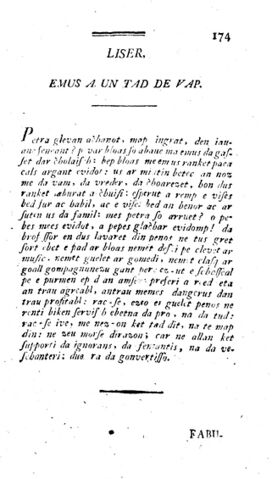 174
LISER.
EMUS A UN TAD DE VAP.
Petra glevan achanot, map ingrat, den iau-
ans? p'var bloas so abaue ma emus da gas-
set dar c'holaich: hep bloas me emus ranket paea
cals argant evidot: us ar miatin betec an noz
me da vam, da vreder, da c'hoarezet, bon dus
ranket labourat a : esperut a remp e vises
bed sur ac habil, ac e vises bed an benor ac ar
suten us da famil: mes petra so arruet? o pe-
bes mees evidot, a pepes glac'har evidomp! da
brofessor en dus lavaret din penos ne tus gret
fors ebet e pad ar bloas nemet desci pe clevet ar
music, nemet guelet ar gomedi, nemet
goall gompagnunezu gant per e
pe e purmen ep d an amser: preferi a red eta
an trau agreabl, antrau memes dangerus dan
trau profitabl: rac-se, evto ei guelet penos ne
renti biken servis ebetna da pro, na da tud:
rac-se ive, me nezon ket tad dit, na te map
din: ne zeu morse dirazon; car ne allan ket
supporti da ignorans, da feneantis, na da ve-
chanteri; dua ra da gonvertisso.
FABU-